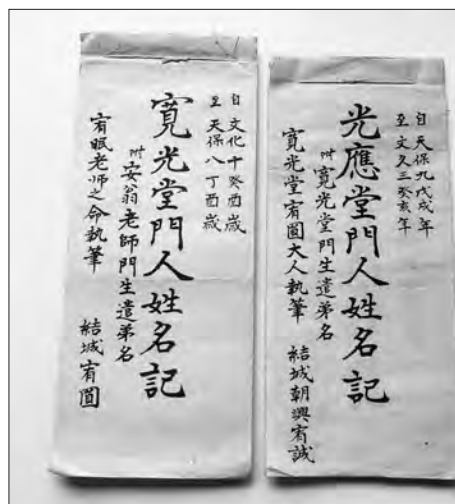 自天保九戊戌年
至文久三癸亥年
光應堂門人姓名記
附寛光堂門生遺弟名
寛光堂宥圓大人執筆　結城朝興宥誠
自文化十癸酉歳
至天保八丁酉歳
寛光堂門人姓名記
附安翁老師門生遺弟名
宥眠老师之命執筆　結城宥圓